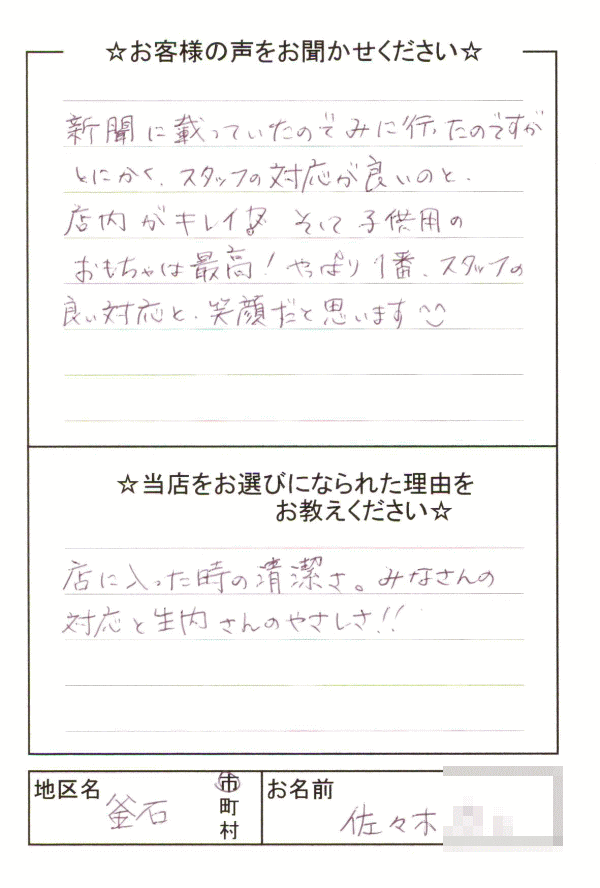 ☆お客様の声をお聞かせください☆
新聞に載っていたのでみに行ったのですが
とにかく、スタッフの対応が良いのと、
店内がキレイな そして子供用の
おもちゃは最高！やっぱり1番、スタッフの
良い対応と、笑顔だと思います
☆当店をお選びになられた理由を
お教えください☆
店に入った時の清潔さ。みなさんの
対応と生内さんのやさしさ!!
地区名 釜石 市町村
お名前 佐々木